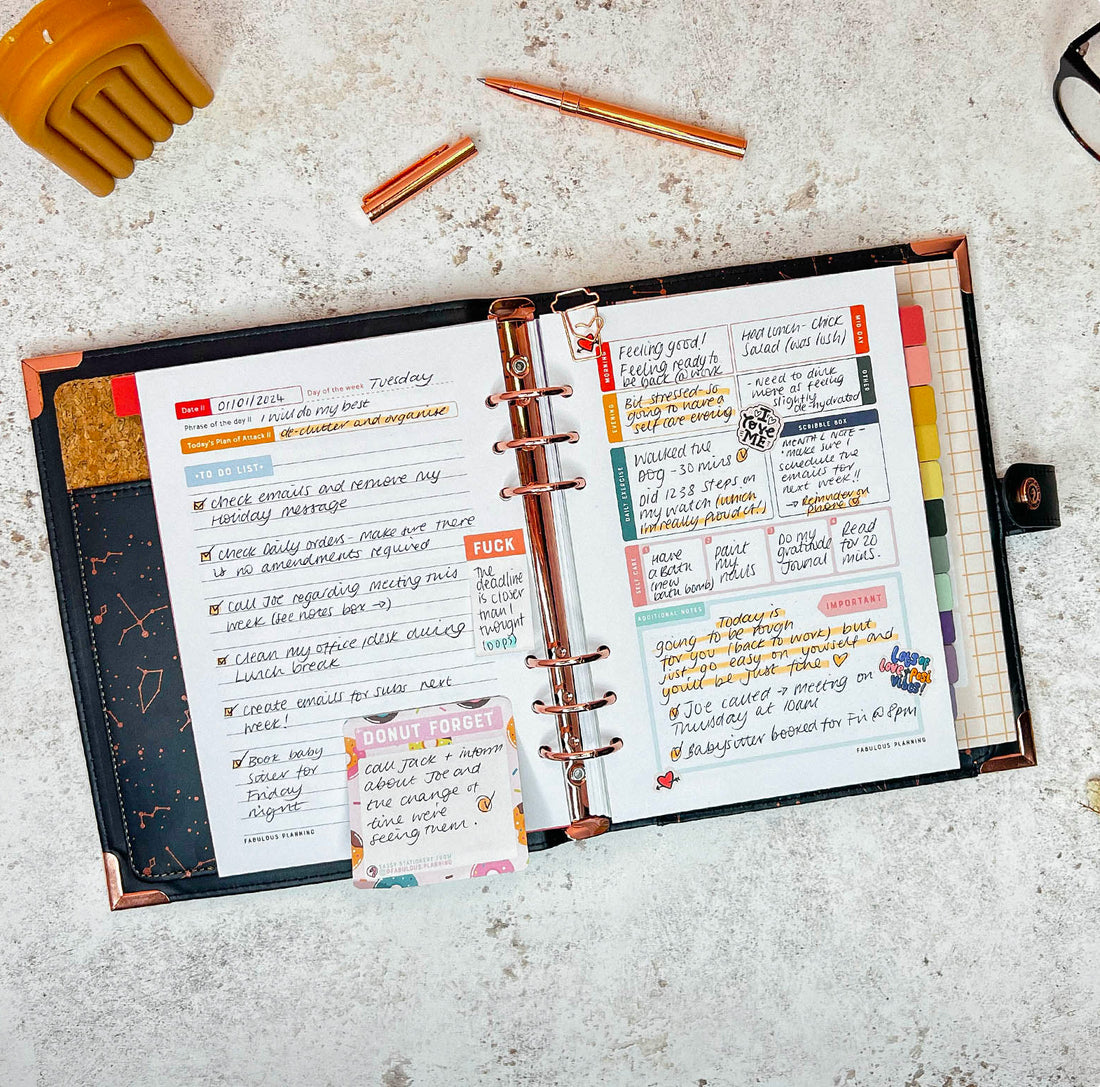 Date // 01/01/2024 Day of the week Tuesday
Phrase of the day // I will do my best
Today's Plan of Attack // de-clutter and organise
•TO DO LIST•
check emails and remove my
Holiday message
check Daily orders - make sure there
is no amendments required
Call Joe regarding meeting this
week (see notes box →)
clean my office desk during
Lunch break
create emails for subs next
week!
Book baby
sitter for
Friday
night
FABULOUS PLANNING
FUCK
The
deadline
is closer
than I
thought
(oops)
DONUT FORGET
call Jack + inform
about Joe and
the change of
time were
seeing them.
SASSY STATIONERY FROM
@FABULOUS.PLANNING
MORNING
Feeling good!
Feeling ready to
be back @ work
MID DAY
Had lunch - Chick
Salad (was lush)
EVENING
But stressed - so
going to have a
self care evening
OTHER
- Need to drink
more as feeling
slightly
de-hydrated
I
love
ME
DAILY EXERCISE
Walked the
DOG - 30 mins
Did 1238 Steps on
my watch (which
im really proud of!)
SCRIBBLE BOX
MENTAL NOTE -
make sure I
schedule the
emails for
next week!!
→ Reminder on
phone
SELF CARE
1 Have
a Bath
(new
bath bomb)
2 paint
my
nails
3 Do my
gratitude
Journal
4 Read
for 20
mins.
ADDITIONAL NOTES
IMPORTANT
Today is
going to be rough
for you (back to work) but
just go easy on yourself and
you'll be just fine
Joe called → meeting on
Thursday at 10am
Babysitter booked for Fri @ 8pm
Lots of
love + Posi
vibes!
FABULOUS PLANNING